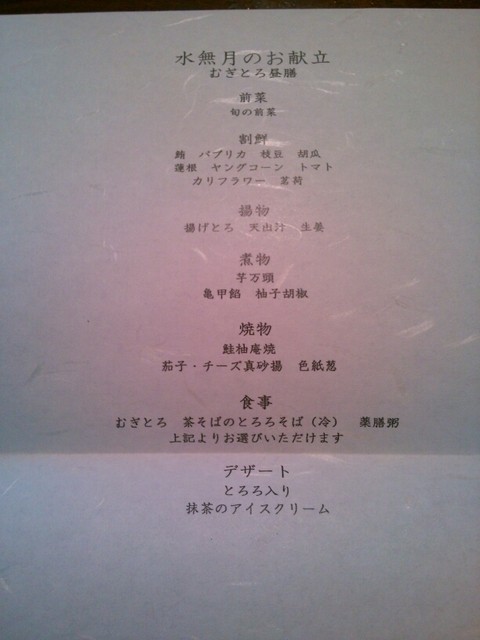 水無月のお献立
むぎとろ昼膳
前菜
旬の前菜
割鮮
鮪 パプリカ 枝豆 胡瓜
蓮根 ヤングコーン トマト
カリフラワー 茗荷
揚物
揚げとろ 天出汁 生姜
煮物
芋万頭
亀甲餡 柚子胡椒
焼物
鮭柚庵焼
茄子・チーズ真砂揚 色紙葱
食事
むぎとろ 茶そばのとろろそば（冷） 薬膳粥
上記よりお選びいただけます
デザート
とろろ入り
抹茶のアイスクリーム